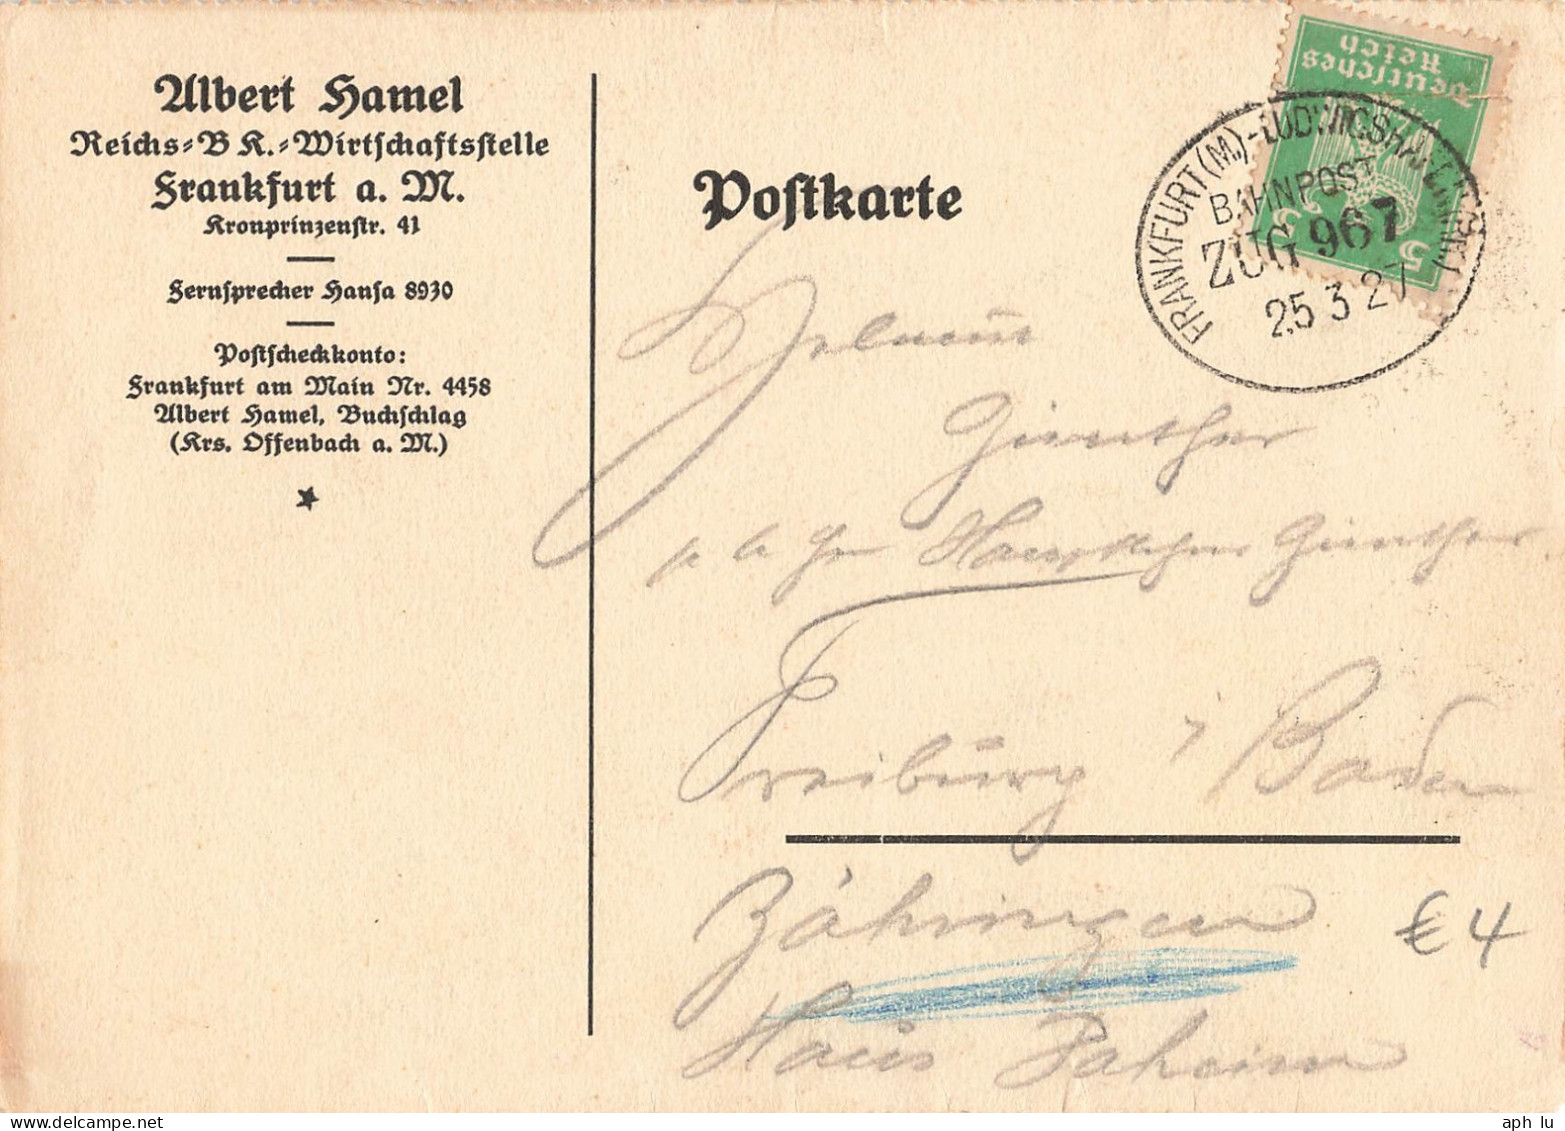 Albert Hamel
Reichs-B K.-Wirtschaftsstelle
Frankfurt a. M.
Kronprinzenstr. 41
Fernsprecher Hansa 8930
Postscheckkonto:
Frankfurt am Main Nr. 4458
Albert Hamel, Buchschlag
(Krs. Offenbach a. M.)
Postkarte
Deutsches
Reich
5 5
FRANKFURT (M.)-LUDWIGSHAFEN
BAHNPOST
ZUG 967
25 3 27
Helmut
Günther
Günther
Freiburg i Baden
Zähringen
€ 4
Haus
aph lu